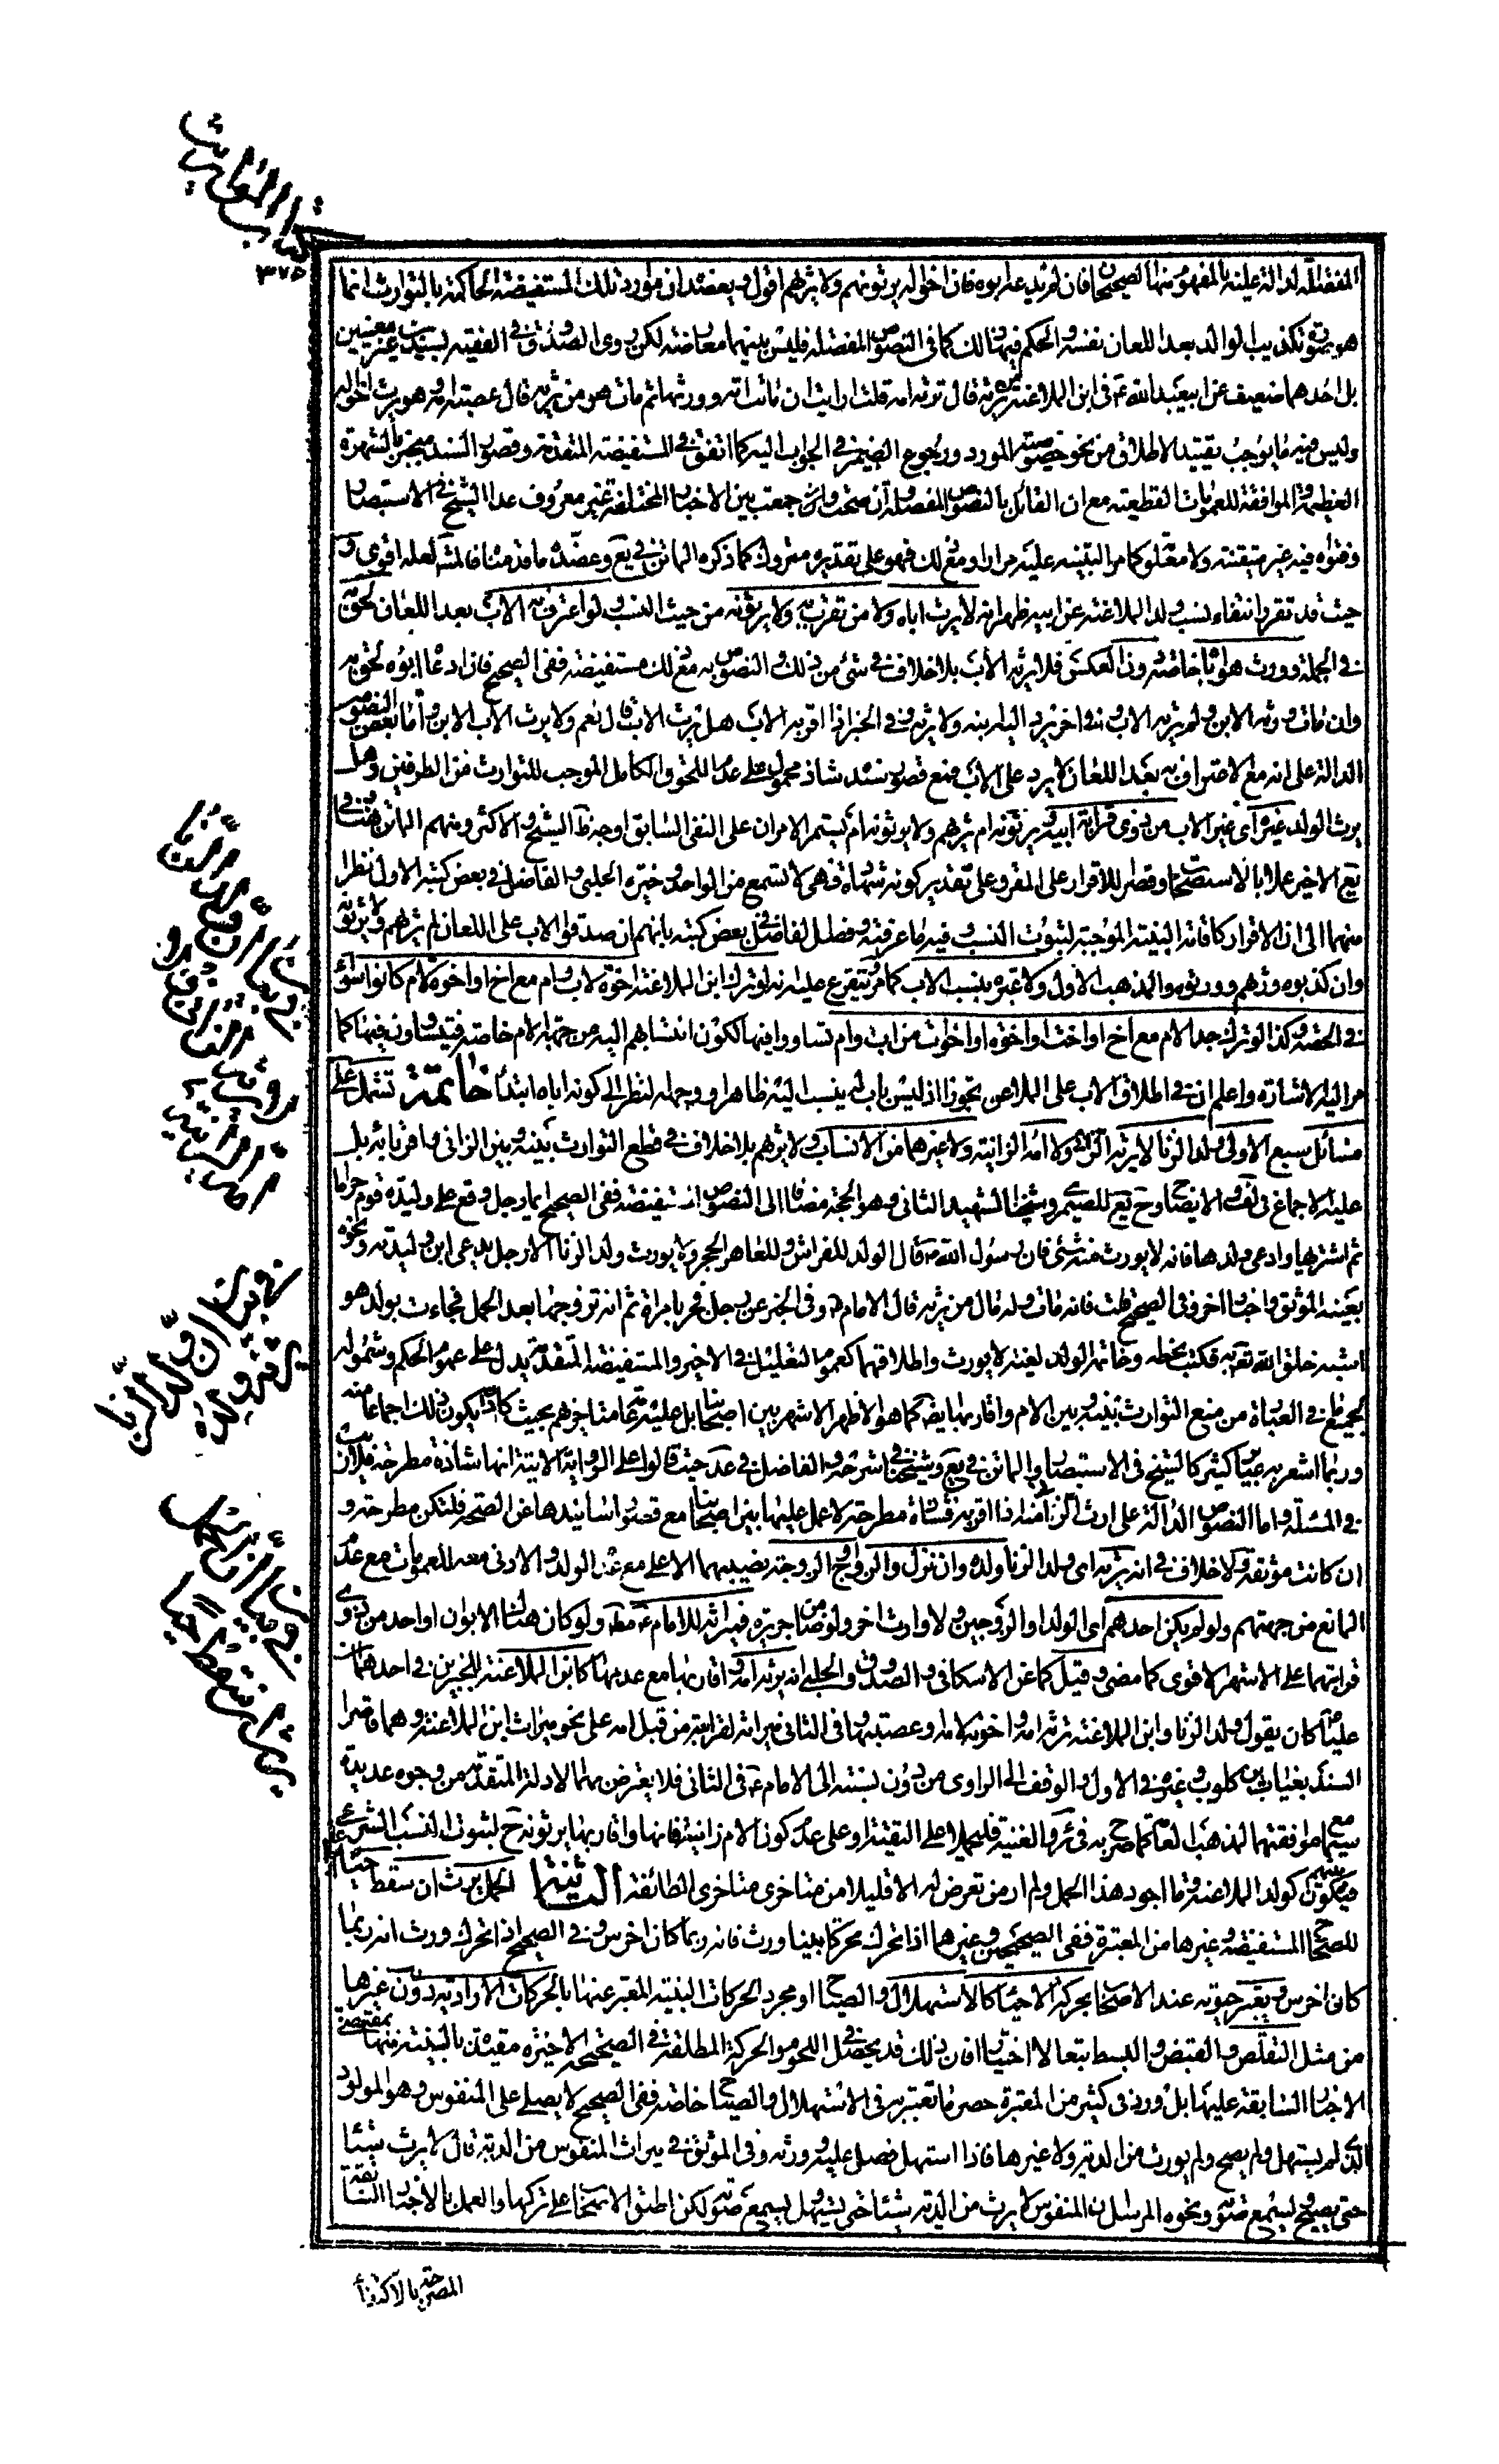 كتاب المواريث
٣٧٥
المفصلة لدالة عليه بالمفهوم منها الصحيحان فان لم يدعه ابوه فان اخواله يرثونه ولا يرثهم اقول ويعضده ان مورد تلك المستفيضة الحاكمة بالتوارث انما
هو صورة تكذيب الوالد بعد اللعان نفسه والحكم فيها ذلك كما في النصوص المفصلة فليس بينهما معارضة لكن روى الصدوق في الفقيه بسندين غير معتبرين
بل احدهما ضعيف عن ابي عبد الله ع في ابن الملاعنة من يرثه قال ترثه امه قلت ارايت ان ماتت امه وورثها ثم مات هو من يرثه قال عصبة امه وهو يرث اخواله
وليس فيه ما يوجب تقييد الاطلاق من نحو خصوصية المورد ورجوع الضمير في الجواب اليه كما اتفق في المستفيضة المتقدمة وقصور السند منجبر بالشهرة
العظيمة والموافقة للعمومات القطعية مع ان القائل بالنصوص المفصلة ان صحت وان جمعت بين الاخبار المختلفة غير معروف عدا الشيخ في الاستبصار
وفتواه فيه غير متيقنة ولا معلومة كما مر التنبيه عليه مرارا ومع ذلك فهو على تقديره متروك كما ذكره الماتن في يع وعضده ما قدمناه فالمش لعله اقوى و
حيث قد تقرر انتفاء نسب ولد الملاعنة عن ابيه ظهر انه لا يرث اباه ولا من تقرب به ولا يرثونه من حيث النسب ولو اعترف به الاب بعد اللعان لحق به
في الجملة وورث هو اباه خاصة دون العكس فلا يرثه الاب بلا خلاف في شئ من ذلك والنصوص به مع ذلك مستفيضة ففي الصحيح فان ادعاه ابوه لحق به
وان مات ورثه الابن ولم يرثه الاب وفي اخر يرد اليه ابنه ولا يرثه وفي الخبر اذا اقر به الاب هل يرث الاب قال نعم ولا يرث الاب الابن واما بعض النصوص
الدالة على انه مع الاعتراف به بعد اللعان لا يرد على الاب فمع قصور سنده شاذ محمول على عدم اللحوق الكامل الموجب للتوارث من الطرفين وهل
يرث الولد غيره اى غير الاب من ذوى قرابة ابيه ويرثونه ام يرثهم ولا يرثونه ام يستمر الامران على النفي السابق اوجه ظ الشيخ والاكثر ومنهم الماتن هنا وفي
يع الاخير عملا بالاستصحاب وقصرا للاقرار على المقر وعلى تقدير كونه شهادة فهي لا تسمع من الواحد وخيرة الحلبي والفاضل في بعض كتبه الاول نظرا
منهما الى ان الاقرار كاقامة البينة الموجبة لثبوت النسب وفيه ما عرفته وفصل الفاضل في بعض كتبه بانهم ان صدقوا الاب على اللعان لم يرثهم ولا يرثونه
وان كذبوه ورثهم وورثوه والمذهب الاول ولا عبرة بنسب الاب كما مر ويتفرع عليه انه لو ترك ابن الملاعنة اخوة لاب وام مع اخ او اخوة لام كانوا سواء
في الحصة وكذا لو ترك جدا لام مع اخ او اخت او اخوة او اخوات من اب وام تساووا فيها لكون انتسابهم اليه من جهة الام خاصة فيتساوون فيها كما
مر اليه الاشارة واعلم ان في اطلاق الاب على الملاعن تجوزا اذ ليس باب له ينسب اليه ظاهرا ووجهه النظر الى كونه اباه ابتداء خاتمة تشتمل على
مسائل سبع الاولى ولد الزنا لا يرثه الزاني ولا امه الزانية ولا غيرها من الانساب ولا يرثهم بلا خلاف في قطع التوارث بينه وبين الزاني واقربائه بل
عليه الاجماع في لف والايضاح ويع للصيمري وشيخنا الشهيد الثاني وهو الحجة مضافا الى النصوص المستفيضة ففي الصحيح ايما رجل وقع على وليدة قوم حراما
ثم اشتريها وادعى ولدها فانه لا يورث منه شئ فان رسول الله ص قال الولد للفراش وللعاهر الحجر ولا يورث ولد الزنا الا رجل يدعى ابن وليدته ونحوه
بعينه الموثق واخبار اخر وفي الصحيح قلت فانه مات وله مال من يرثه قال الامام وفي الخبر عن رجل فجر بامرأة ثم انه تزوجها بعد الحمل فجاءت بولد هو
اشبه خلق الله تع به فكتب بخطه وخاتمه الولد لغية لا يورث واطلاقهما كعموم التعليل في الاخير والمستفيضة المتقدمة يدل على عموم الحكم وشموله
لجميع ما في العبارة من منع التوارث بينه وبين الام واقاربها ايضا كما هو الاظهر الاشهر بين اصحابنا بل عليه عامة متاخريهم بحيث كاد ان يكون ذلك اجماعا منه
وربما اشعر به عبائر كثير كالشيخ في الاستبصار والماتن في يع وشيخنا في شرحه والفاضل في عد حيث قالوا على الرواية الاتية انها شاذة مطرحة فلا ريب
في المسئلة واما النصوص الدالة على ارث الزاني منه اذا اقر به فشاذة مطرحة لا عمل عليها بين اصحابنا مع قصور اسانيدها عن الصحة فلتكن مطرحة و
ان كانت موثقة ولا خلاف في انه يرثه اى ولد الزنا ولده وان نزل والزوج او الزوجة نصيبهما الاعلى مع عدم الولد والادنى معه للعمومات مع عدم
المانع من جهتهم ولو لم يكن احدهم اى الولد او الزوجين ولا وارث اخر ولو ضامن جريرة فميراثه للامام ع مط ولو كان هناك الابوان او احد من ذوي
قرابتهما على الاشهر الاقوى كما مضى وقيل كما عن الاسكافي والصدوق والحلبي انه يرثه امه واقاربها مع عدمها كابن الملاعنة للخبرين في احدهما ان
عليا ع كان يقول ولد الزنا وابن الملاعنة ترثه امه واخوته لامه وعصبتها وفي الثاني ميراثه لقرابته من قبل امه على نحو ميراث ابن الملاعنة وهما قاصرا
السند بغياث بن كلوب وغيره في الاول والوقف الى الراوى من دون نسبته الى الامام ع في الثاني فلا يعترض بهما الادلة المتقدمة من وجوه عديدة
سيما مع موافقتهما لمذهب العامة كما صرح به في ئر والغنية فليحملا على التقية او على عدم كون الام زانية فانها واقاربها يرثونه ح لثبوت النسب الشرعي
فيكون كولد الملاعنة وما اجود هذا الحمل ولم ار من تعرض له الا قليلا من متاخرى متاخرى الطائفة الثانية الحمل يرث ان سقط حيا
للصحاح المستفيضة وغيرها من المعتبرة ففي الصحيحين وغيرهما اذا تحرك تحركا بينا ورث فانه ربما كان اخرس وفي الصحيح اذا تحرك ورث انه ربما
كان اخرس ويعتبر حيوته عند الاصحاب بحركة الاحياء كالاستهلال والصياح او مجرد الحركات البينة المعبر عنها بالحركات الارادية دون غيرها
من مثل التقلص والقبض والبسط تبعا لا اختيارا فان ذلك قد يحصل في اللحوم والحركة المطلقة في الصحيحة الاخيرة مقيدة بالبينة منها بمقتضى
الاخبار السابقة عليها بل ورد في كثير من المعتبرة حصر ما تعتبر في الاستهلال والصياح خاصة ففي الصحيح لا يصلى على المنفوس وهو المولود
الذي لم يستهل ولم يصح ولم يورث من الدية ولا غيرها فاذا استهل فصل عليه وورثه وفي الموثق في ميراث المنفوس من الدية قال لا يرث شيئا
حتى يصيح ويسمع صوته ونحوه المرسل ان المنفوس لا يرث من الدية شيئا حتى يستهل ويسمع صوته لكن اطبق الاصحاب على تركها والعمل بالاخبار السابقة
في بيان ان ولد الزنا
يرثه ولده
في بيان ان الحمل
يرث ان سقط حيا